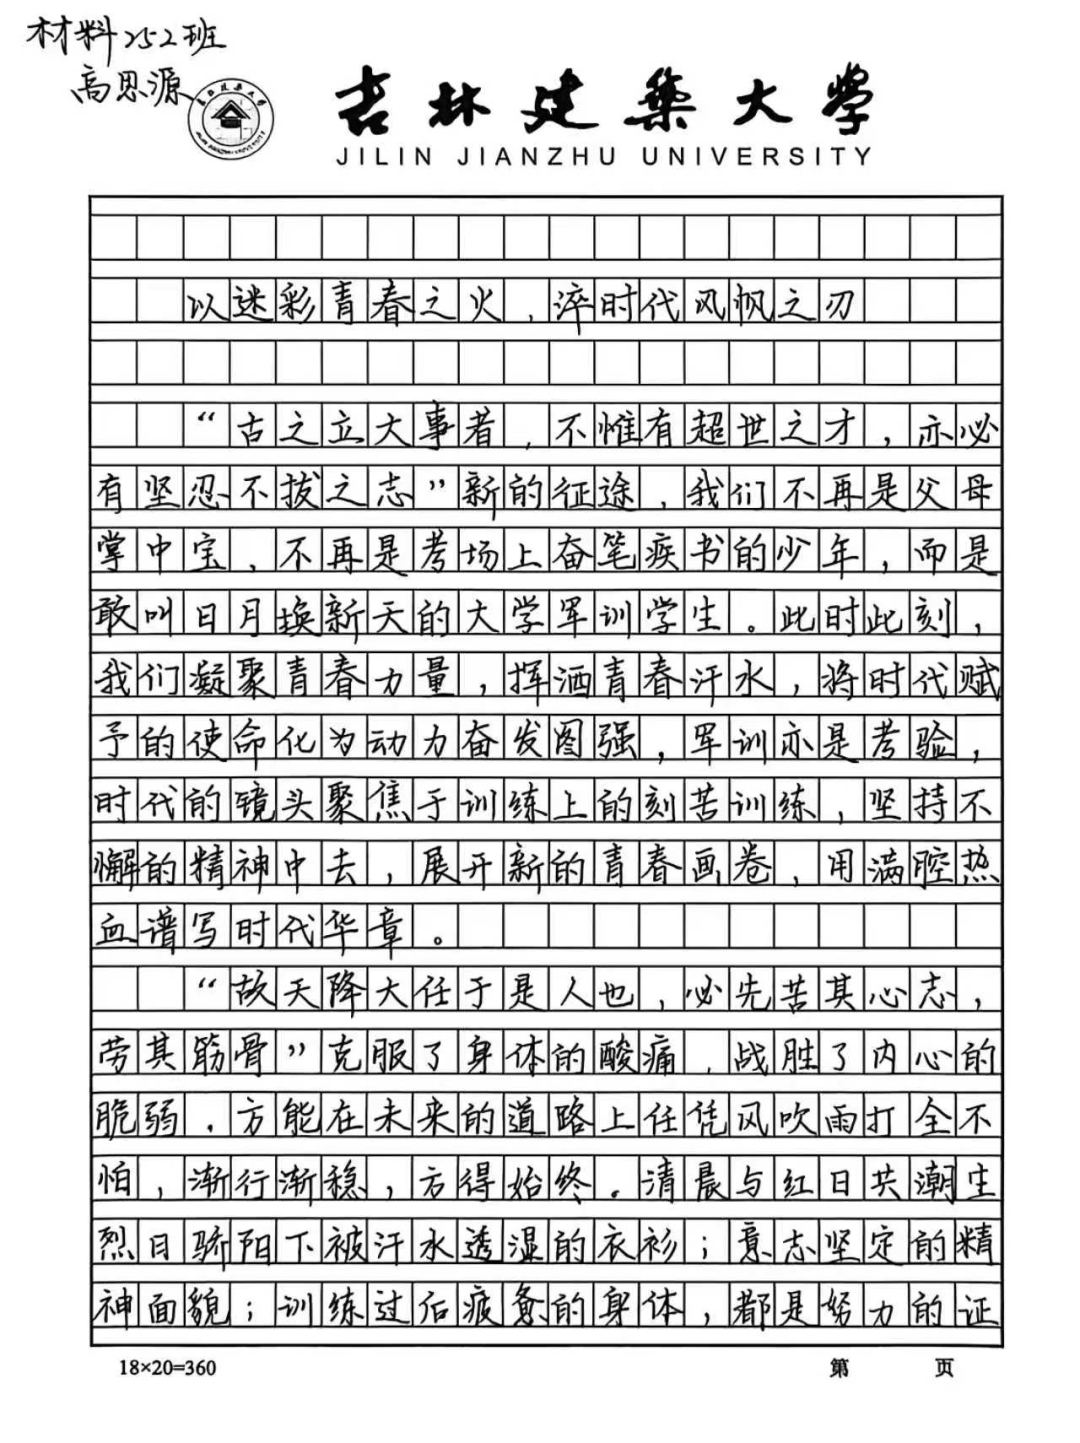 材料252班
高思源
吉林建筑大学
JILIN JIANZHU UNIVERSITY
以迷彩青春之火，淬时代风帆之刃
“古之立大事者，不惟有超世之才，亦必
有坚忍不拔之志”新的征途，我们不再是父母
掌中宝，不再是考场上奋笔疾书的少年，而是
敢叫日月换新天的大学军训学生。此时此刻，
我们凝聚青春力量，挥洒青春汗水，将时代赋
予的使命化为动力奋发图强，军训亦是考验，
时代的镜头聚焦于训练上的刻苦训练，坚持不
懈的精神中去，展开新的青春画卷，用满腔热
血谱写时代华章。
“故天降大任于是人也，必先苦其心志，
劳其筋骨”克服了身体的酸痛，战胜了内心的
脆弱，方能在未来的道路上任凭风吹雨打全不
怕，渐行渐稳，方得始终。清晨与红日共潮生
烈日骄阳下被汗水透湿的衣衫；意志坚定的精
神面貌；训练过后疲惫的身体，都是努力的证
18×20=360
第 页